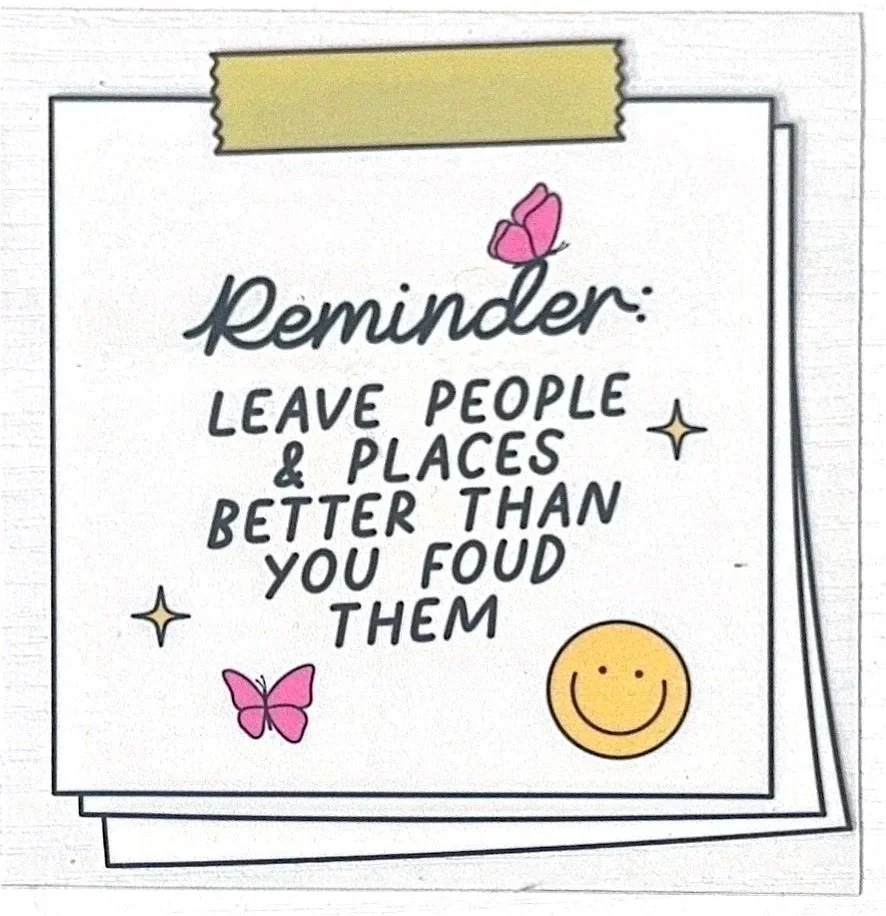 Reminder:
LEAVE PEOPLE
& PLACES
BETTER THAN
YOU FOUD
THEM